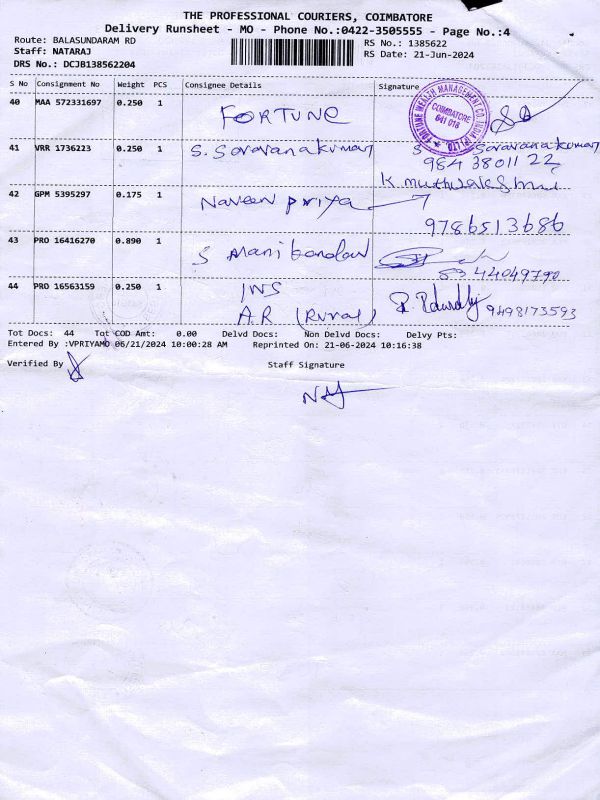 THE PROFESSIONAL COURIERS, COIMBATORE
Delivery Runsheet - MO - Phone No.:0422-3505555 - Page No.:4
Route: BALASUNDARAM RD
RS No.: 1385622
Staff: NATARAJ
RS Date: 21-Jun-2024
DRS No.: DCJB138562204
S No Consignment No Weight PCS Consignee Details Signature
40 MAA 572331697 0.250 1 FORTUNE
FORTUNE WEALTH MANAGEMENT CO. INDIA (P) LTD.
COIMBATORE
641 018
41 VRR 1736223 0.250 1 S. Saravanakumar S Saravanakumar
984 3801122
42 GPM 5395297 0.175 1 Naveen priya K. muthulakshmi
9786513686
43 PRO 16416270 0.890 1 S Manikandan
44 PRO 16563159 0.250 1 INS
A.R (Rural) 9498173593
Tot Docs: 44 Tot COD Amt: 0.00 Delvd Docs: Non Delvd Docs: Delvy Pts:
Entered By :VPRIYAMO 06/21/2024 10:00:28 AM Reprinted On: 21-06-2024 10:16:38
Verified By Staff Signature